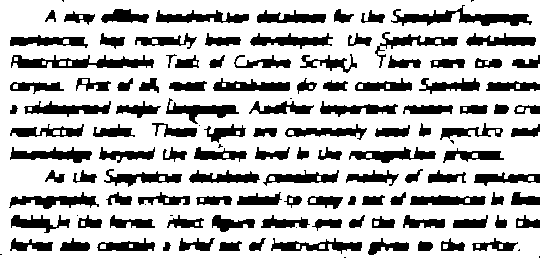 A new offline handwritten database for the Spanish language,
sentences, has recently been developed: the Spartacus database
Restricted-domain Task of Cursive Script). There were two
corpus. First of all, most databases do not contain Spanish
a widespread major language. Another important reason was to
restricted tasks. These tasks are commonly used in practice and
knowledge beyond the lexicon level in the recognition process.
As the Spartacus database consisted mainly of short sentence
paragraphs, the writers were asked to copy a set of sentences in
fields in the forms. Next figure shows one of the forms used in the
forms also contain a brief set of instructions given to the writer.